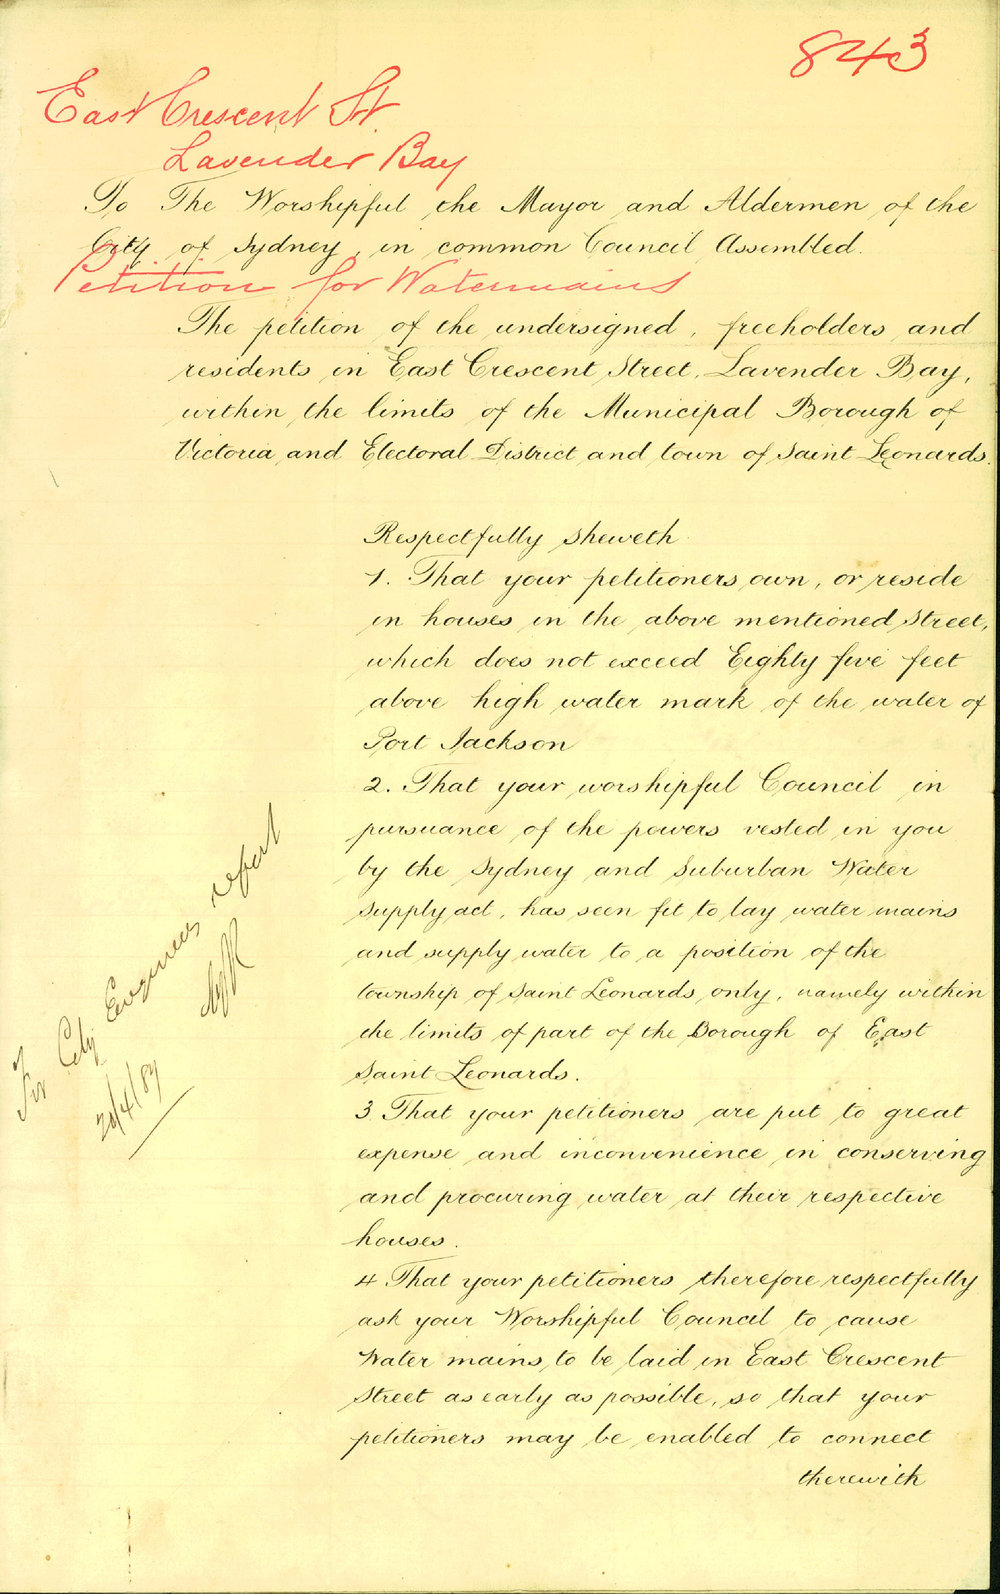 843
East Crescent St
Lavender Bay
To The Worshipful the Mayor and Aldermen of the
City of Sydney, in common Council Assembled.
Petition for Watermains
The petition of the undersigned, freeholders and
residents in East Crescent Street, Lavender Bay,
within the limits of the Municipal Borough of
Victoria and Electoral District and town of Saint Leonards.
Respectfully sheweth
1. That your petitioners own, or reside
in houses in the above mentioned Street,
which does not exceed Eighty five feet
above high water mark of the water of
Port Jackson
2. That your worshipful Council in
pursuance of the powers vested in you
by the Sydney and Suburban Water
Supply act, has seen fit to lay water mains
and supply water to a position of the
township of Saint Leonards only, namely within
the limits of part of the Borough of East
Saint Leonards.
3 That your petitioners are put to great
expense and inconvenience in conserving
and procuring water at their respective
houses.
4 That your petitioners therefore respectfully
ask your Worshipful Council to cause
Water mains to be laid in East Crescent
Street as early as possible, so that your
petitioners may be enabled to connect
therewith
For City Engineers report
20/4/87